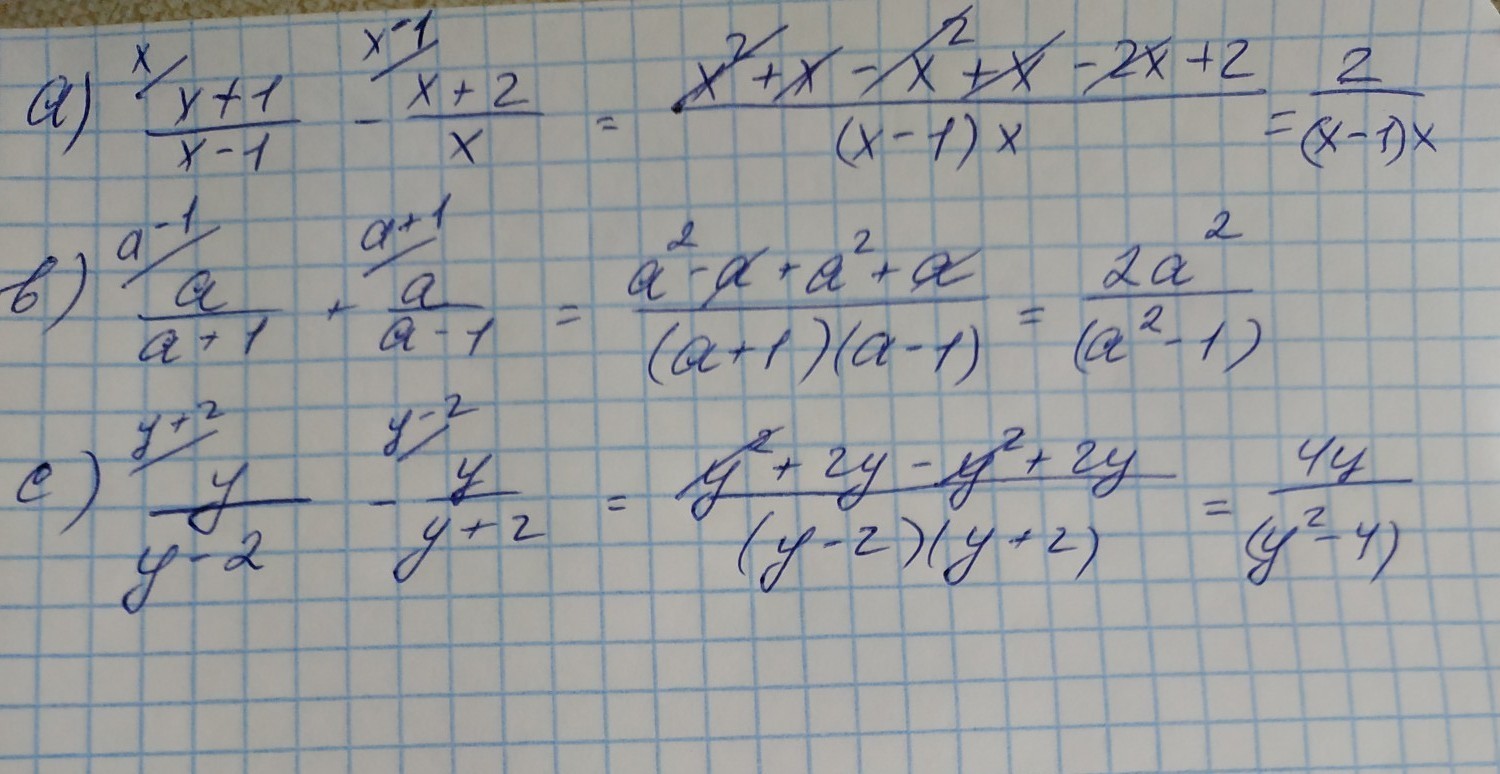 a) x/ (x+1)/(x-1) - x-1/ (x+2)/x = (x²+x-x²+x-2x+2)/((x-1)x) = 2/((x-1)x)
b) a-1/ a/(a+1) + a+1/ a/(a-1) = (a²-a+a²+a)/((a+1)(a-1)) = 2a²/(a²-1)
c) y+2/ y/(y-2) - y-2/ y/(y+2) = (y²+2y-y²+2y)/((y-2)(y+2)) = 4y/(y²-4)